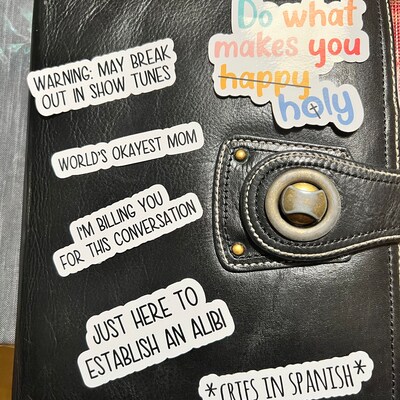 Do what
makes you
happy
holy
WARNING: MAY BREAK
OUT IN SHOW TUNES
WORLD'S OKAYEST MOM
I'M BILLING YOU
FOR THIS CONVERSATION
JUST HERE TO
ESTABLISH AN ALIBI
*CRIES IN SPANISH*